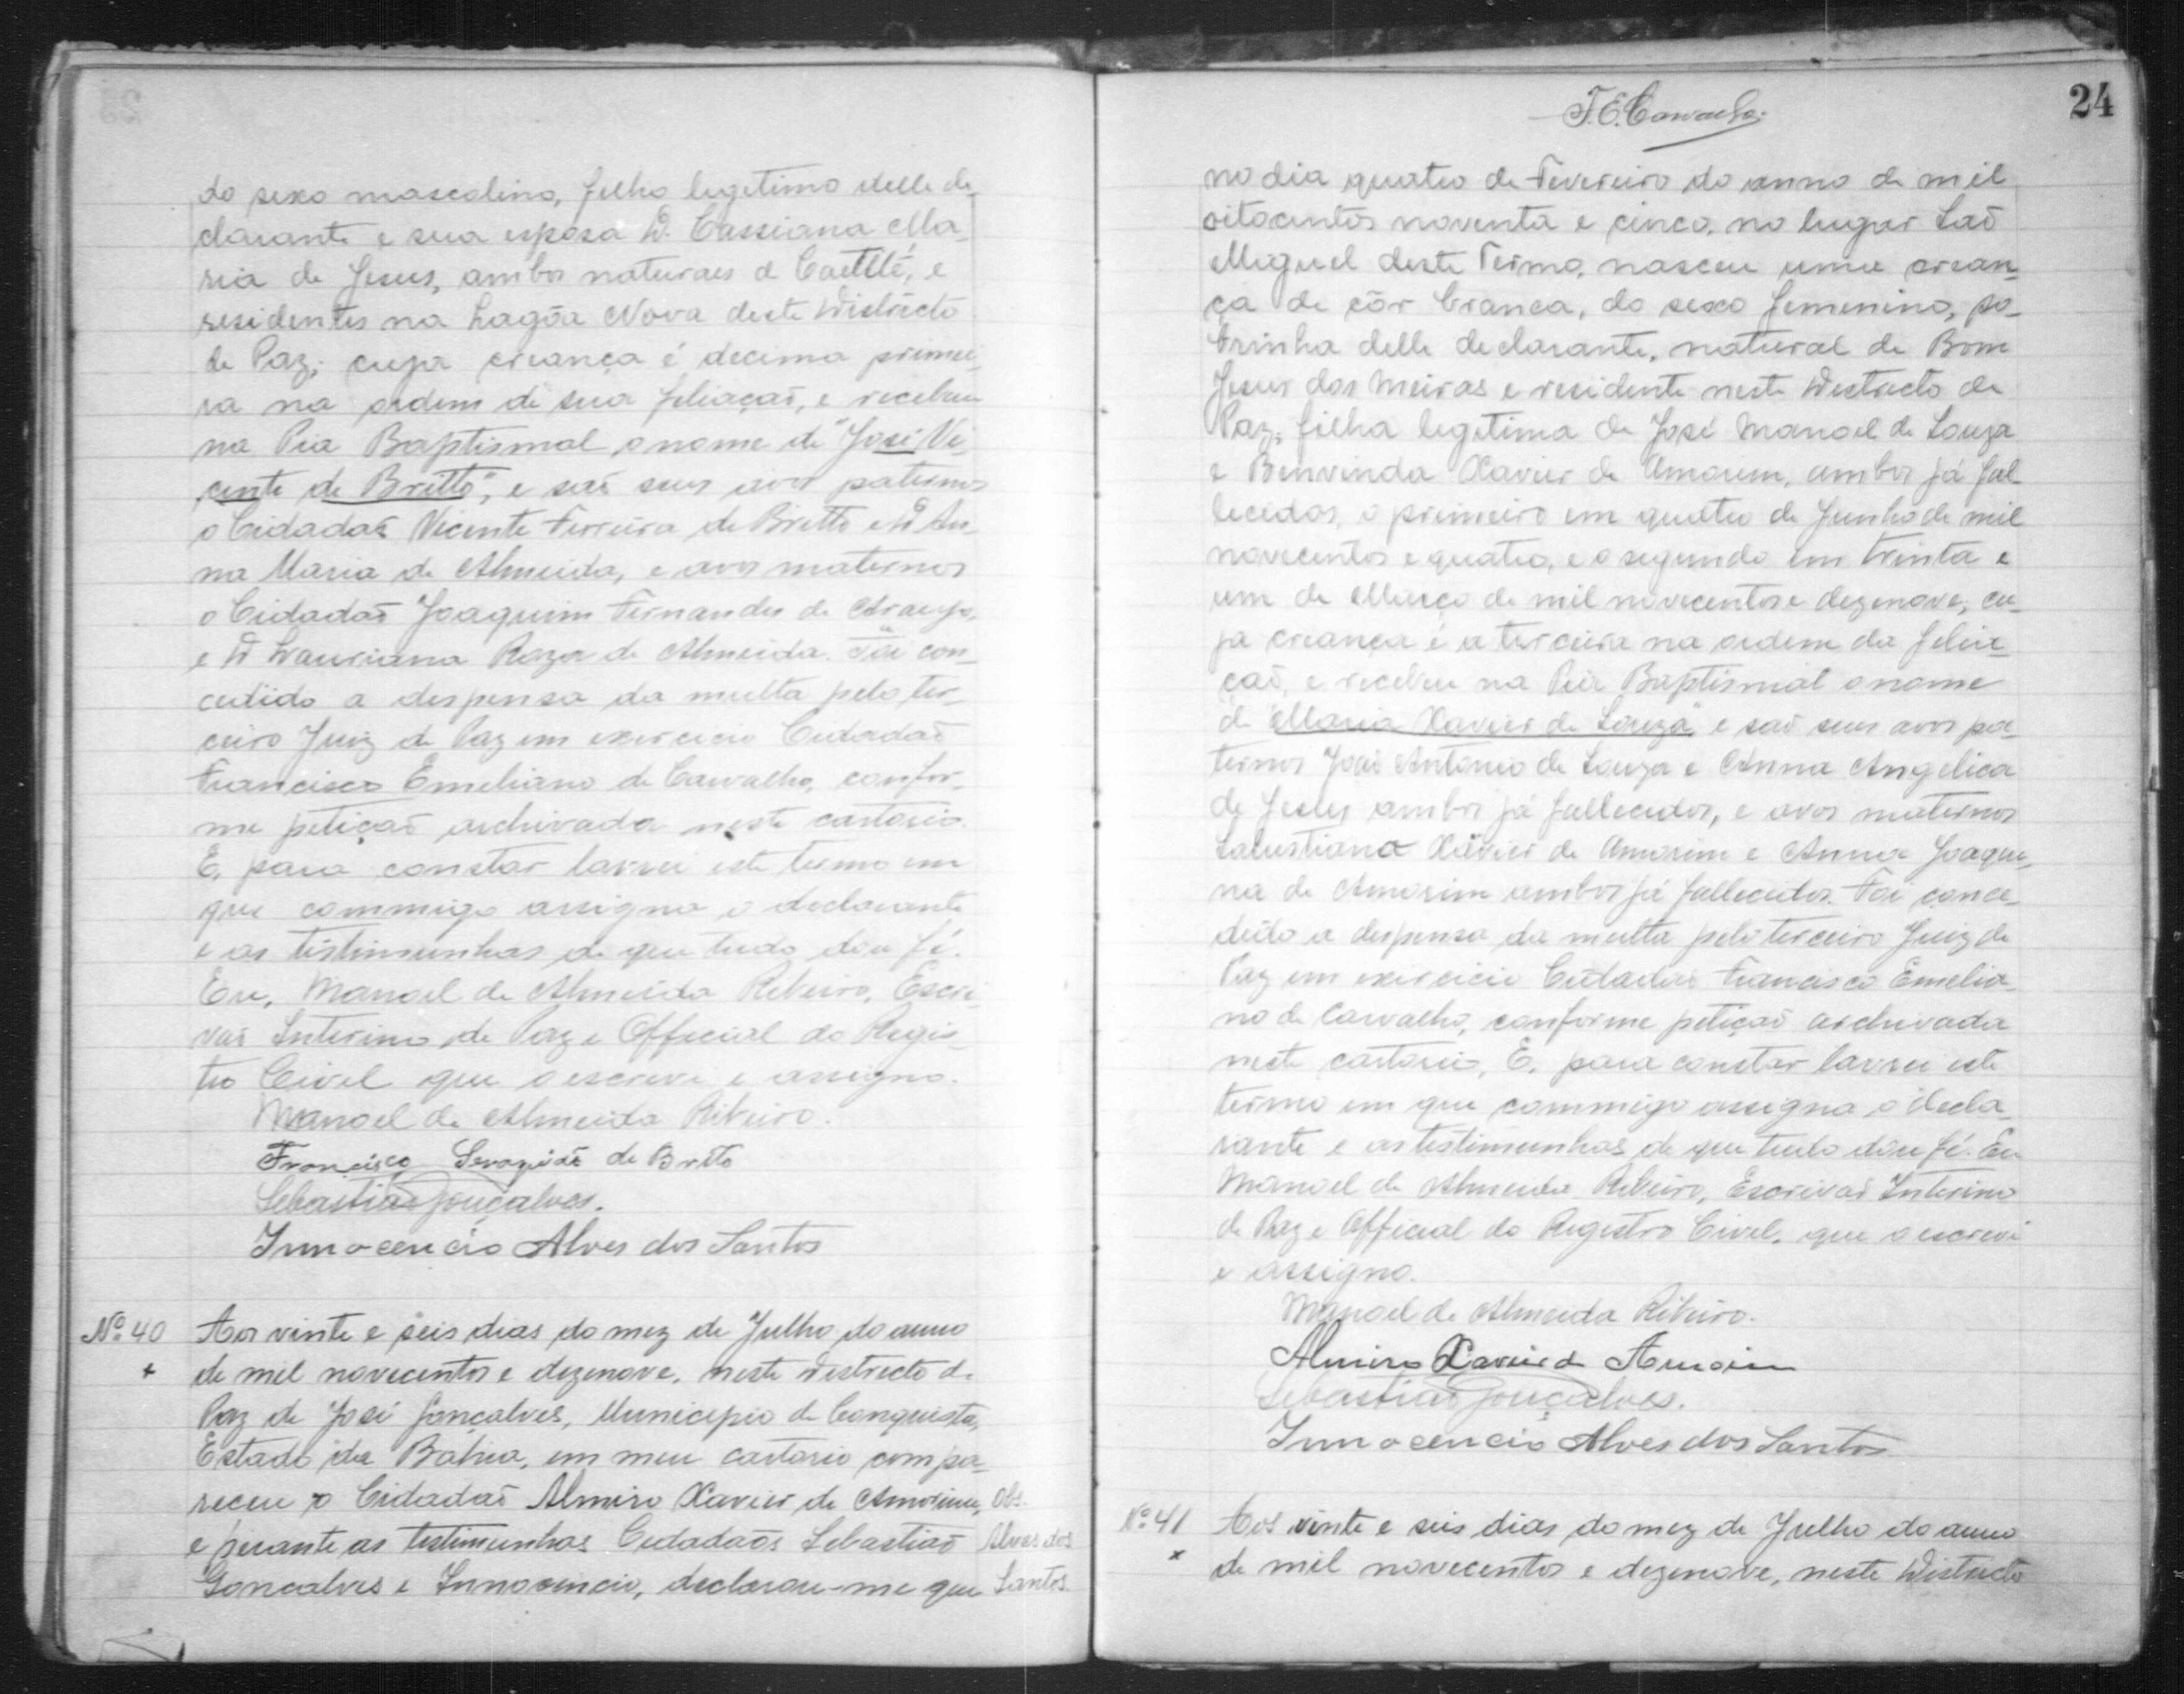 do sexo mascolino, filho legitimo delle de-
clarante e sua esposa D. Cassiana Ma-
ria de Jesus, ambos naturaes d Caetité, e
residentes na Lagôa Nova deste Districto
de Paz; cuja creança é decima primei-
ra na ordem de sua filiaçaõ, e recebeu
na Pia Baptismal o nome de "José Vi-
cente de Britto", e saõ seus avos paternos
o Cidadaõ Vicente Ferreira de Britto e D. An-
na Maria de Almeida, e avos maternos
o Cidadaõ Joaquim Fernandes de Araujo,
e D. Lauriana Roza de Almeida. Foi con-
cedido a despensa da multa pelo ter-
ceiro Juiz de Paz em exercicio Cidadaõ
Francisco Emeliano de Carvalho, confor-
me petiçaõ archivada neste cartorio.
E, para constar lavrei este termo em
que commigo assigna o declarante
e as testimunhas do que tudo dou fé.
Eu, Manoel de Almeida Ribeiro, Escri-
vaõ Interino de Paz e Official do Regis-
tro Civel que o escrevi e assigno.
Manoel de Almeida Ribeiro.
Francisco de Brito
Sebastiaõ Gonçalves.
Innocencio Alves dos Santos
Nº 40 Aos vinte e seis dias do mez de Julho do anno
de mil novecentos e dezenove, neste Districto de
Paz de José Gonçalves, Municipio de Conquista,
Estado da Bahia, em meu cartorio compa-
receu o Cidadaõ Almiro Xavier de Amorim, Obs.
e perante as testimunhas Cidadaõs Sebastiaõ Alves dos
Goncalves e Innocencio, declarou-me que Santos.
24
F. E. Carvalho.
no dia quatro de Fevereiro do anno de mil
oitocentos noventa e cinco, no lugar Saõ
Miguel deste Termo, nasceu uma crean-
ça de côr branca, do sexo femenino, so-
brinha delle declarante, natural de Bom
Jesus dos Meiras e residente neste Destricto de
Paz; filha legitima de José Manoel de Souza
e Benvinda Xavier de Amorim, ambos já fal-
lecidos, o primeiro em quatro de Junho de mil
novecentos e quatro, e o segundo em trinta e
um de Março de mil novecentos e dezenove, cu-
ja creança é a terceira na ordem da filia-
çaõ, e recebeu na Pia Baptismal o nome
de "Maria Xavier de Souza" e saõ seus avos pa-
ternos Joaõ Antonio de Souza e Anna Angelica
de Jesus ambos já fallecidos, e avos maternos
Salustiano Xavier de Amorim e Anna Joaqui-
na de Amorim ambos já fallecidos. Foi conce-
dido a despensa da multa pelo terceiro Juiz de
Paz em exercicio Cidadaõ Francisco Emelia-
no de Carvalho, conforme petiçaõ archivada
neste cartorio, E, para constar lavrei este
termo em que commigo assigna o decla-
rante e as testimunhas de que tudo dou fé. Eu
Manoel de Almeida Ribeiro, Escrivaõ Interino
de Paz e Official do Registro Civel, que o escrevi
e assigno.
Manoel de Almeida Ribeiro.
Almiro Xavier de Amorim
Sebastiaõ Gonçalves.
Innocencio Alves dos Santos
Nº 41 Aos vinte e seis dias do mez de Julho do anno
de mil novecentos e dezenove, neste Districto